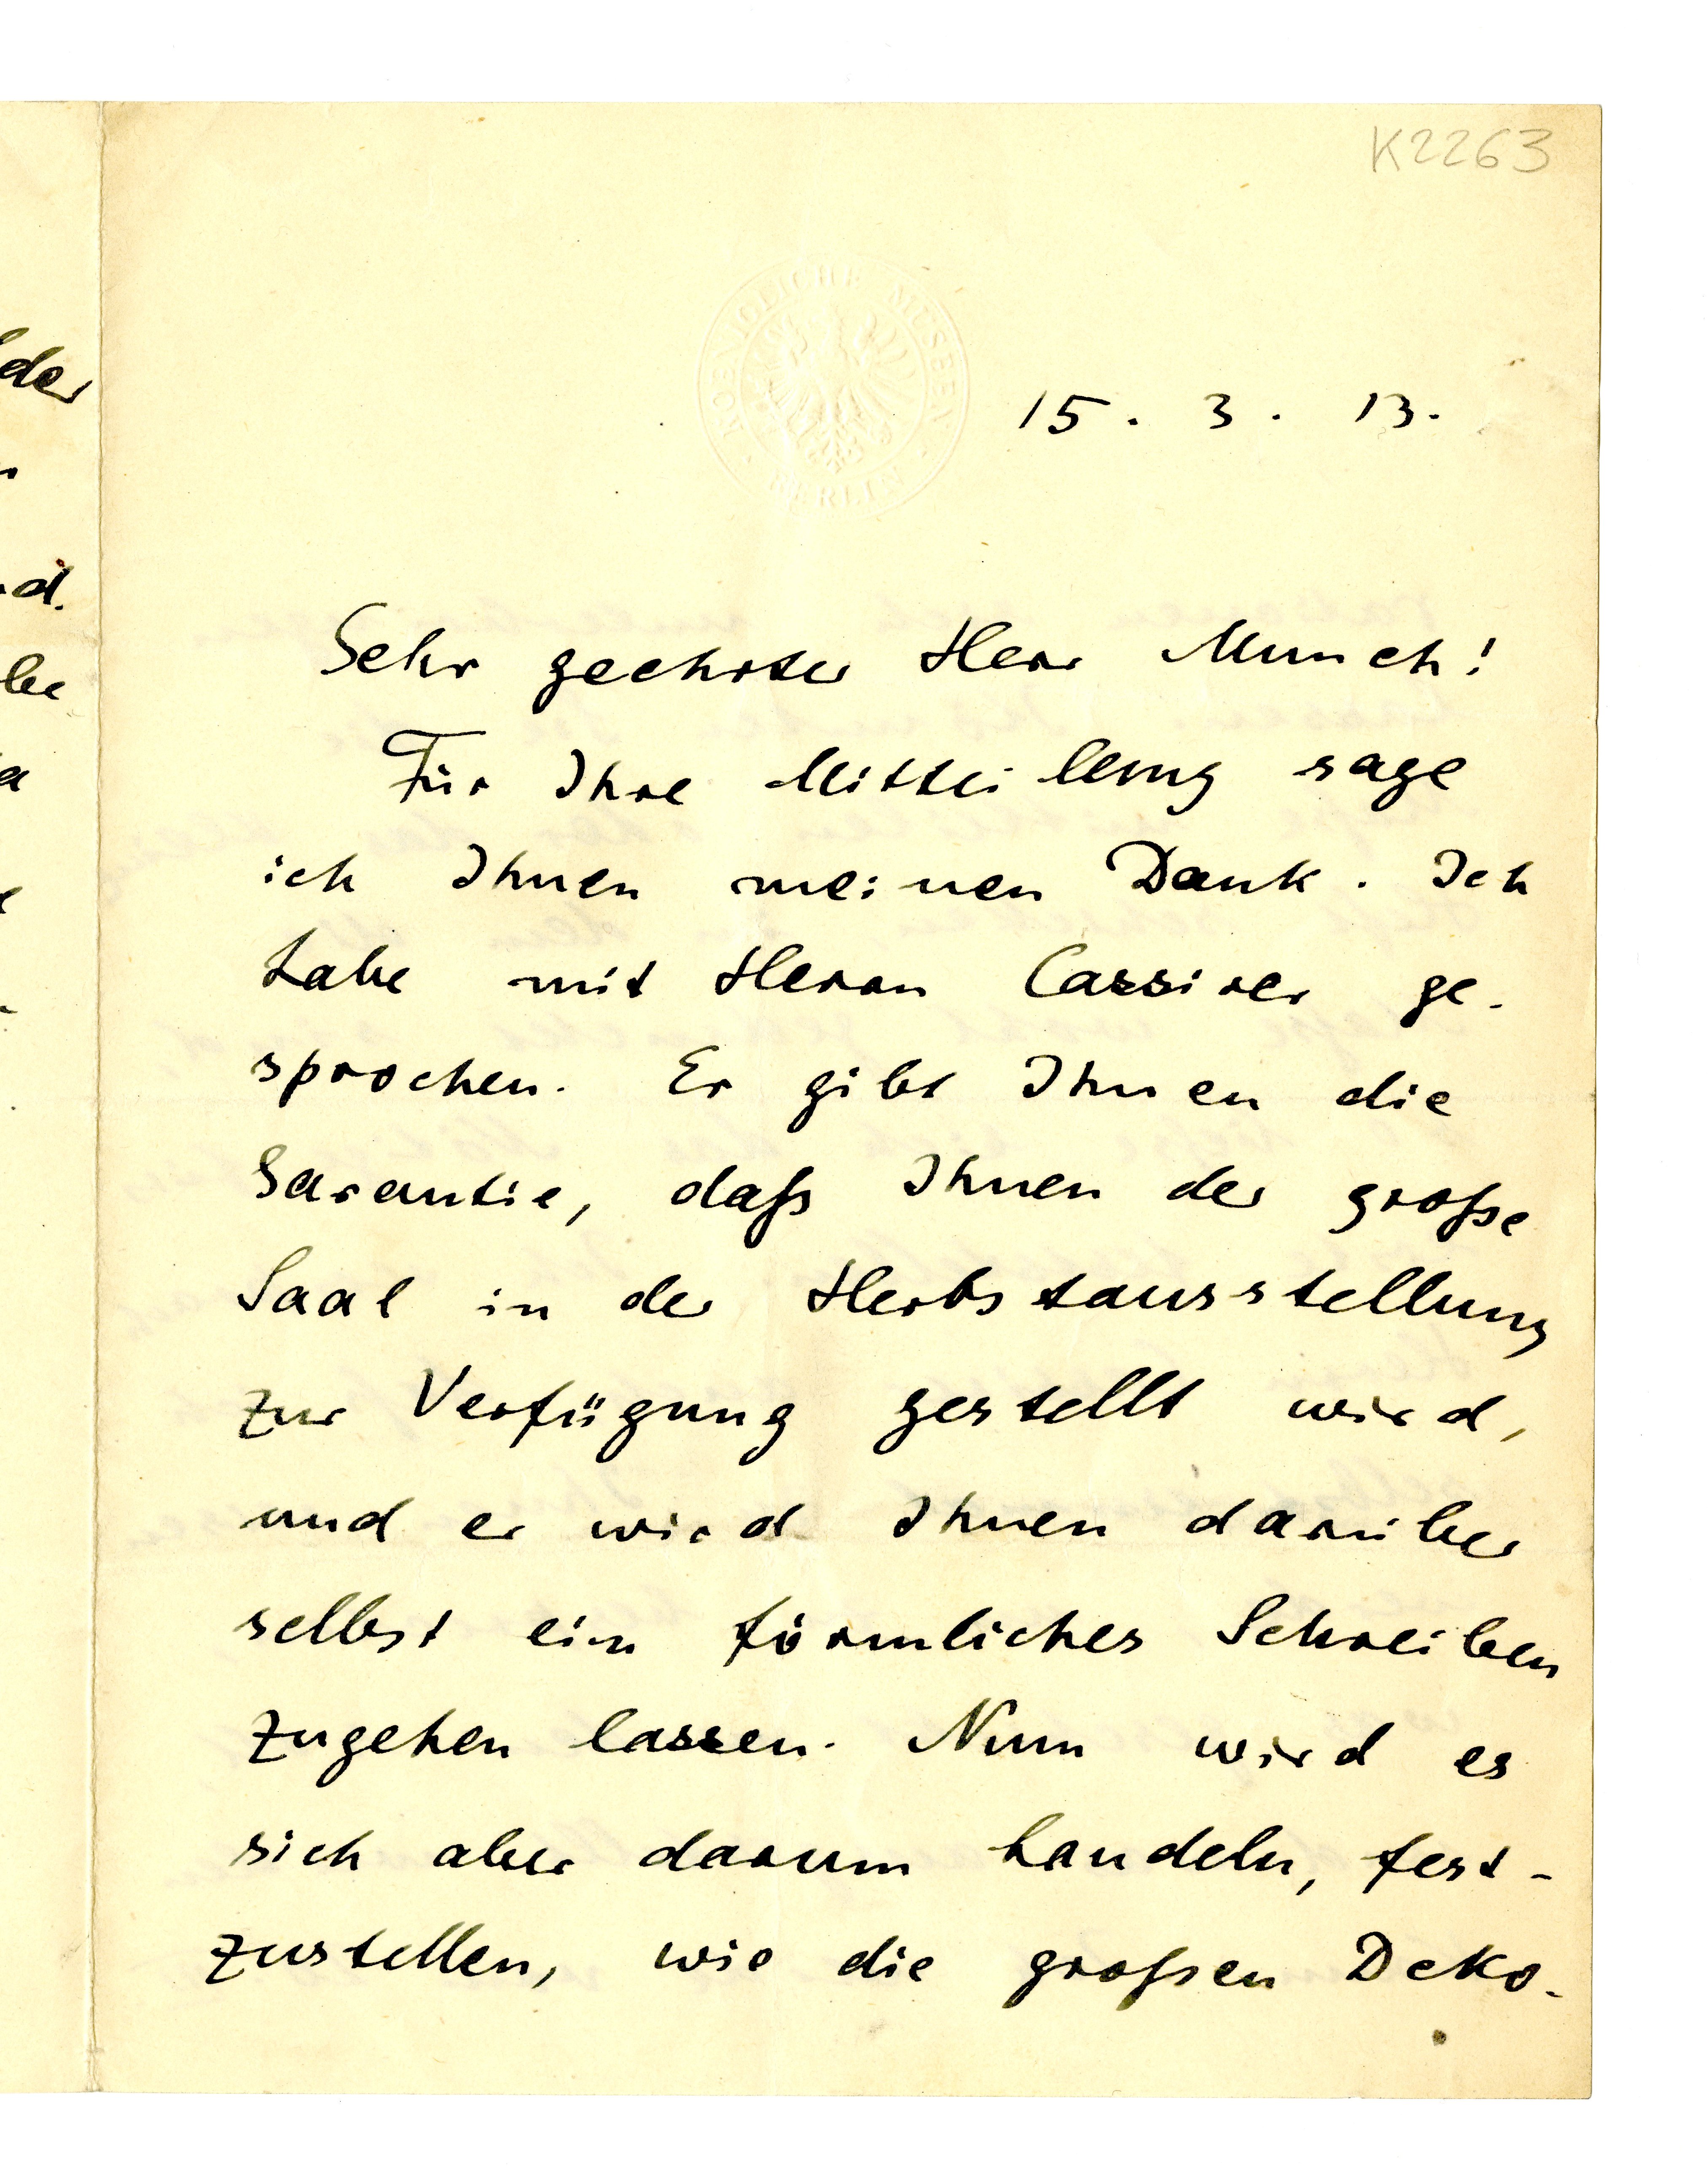 K2263
KOENIGLICHE MUSEEN
BERLIN
15. 3. 13.
Sehr geehrter Herr Munch!
Für Ihre Mitteilung sage
ich Ihnen meinen Dank. Ich
habe mit Herrn Cassirer ge-
sprochen. Er gibt Ihnen die
Garantie, daß Ihnen der große
Saal in der Herbstausstellung
zur Verfügung gestellt wird,
und er wird Ihnen darüber
selbst ein förmliches Schreiben
zugehen lassen. Nun wird es
sich aber darum handeln, fest-
zustellen, wie die großen Deko-